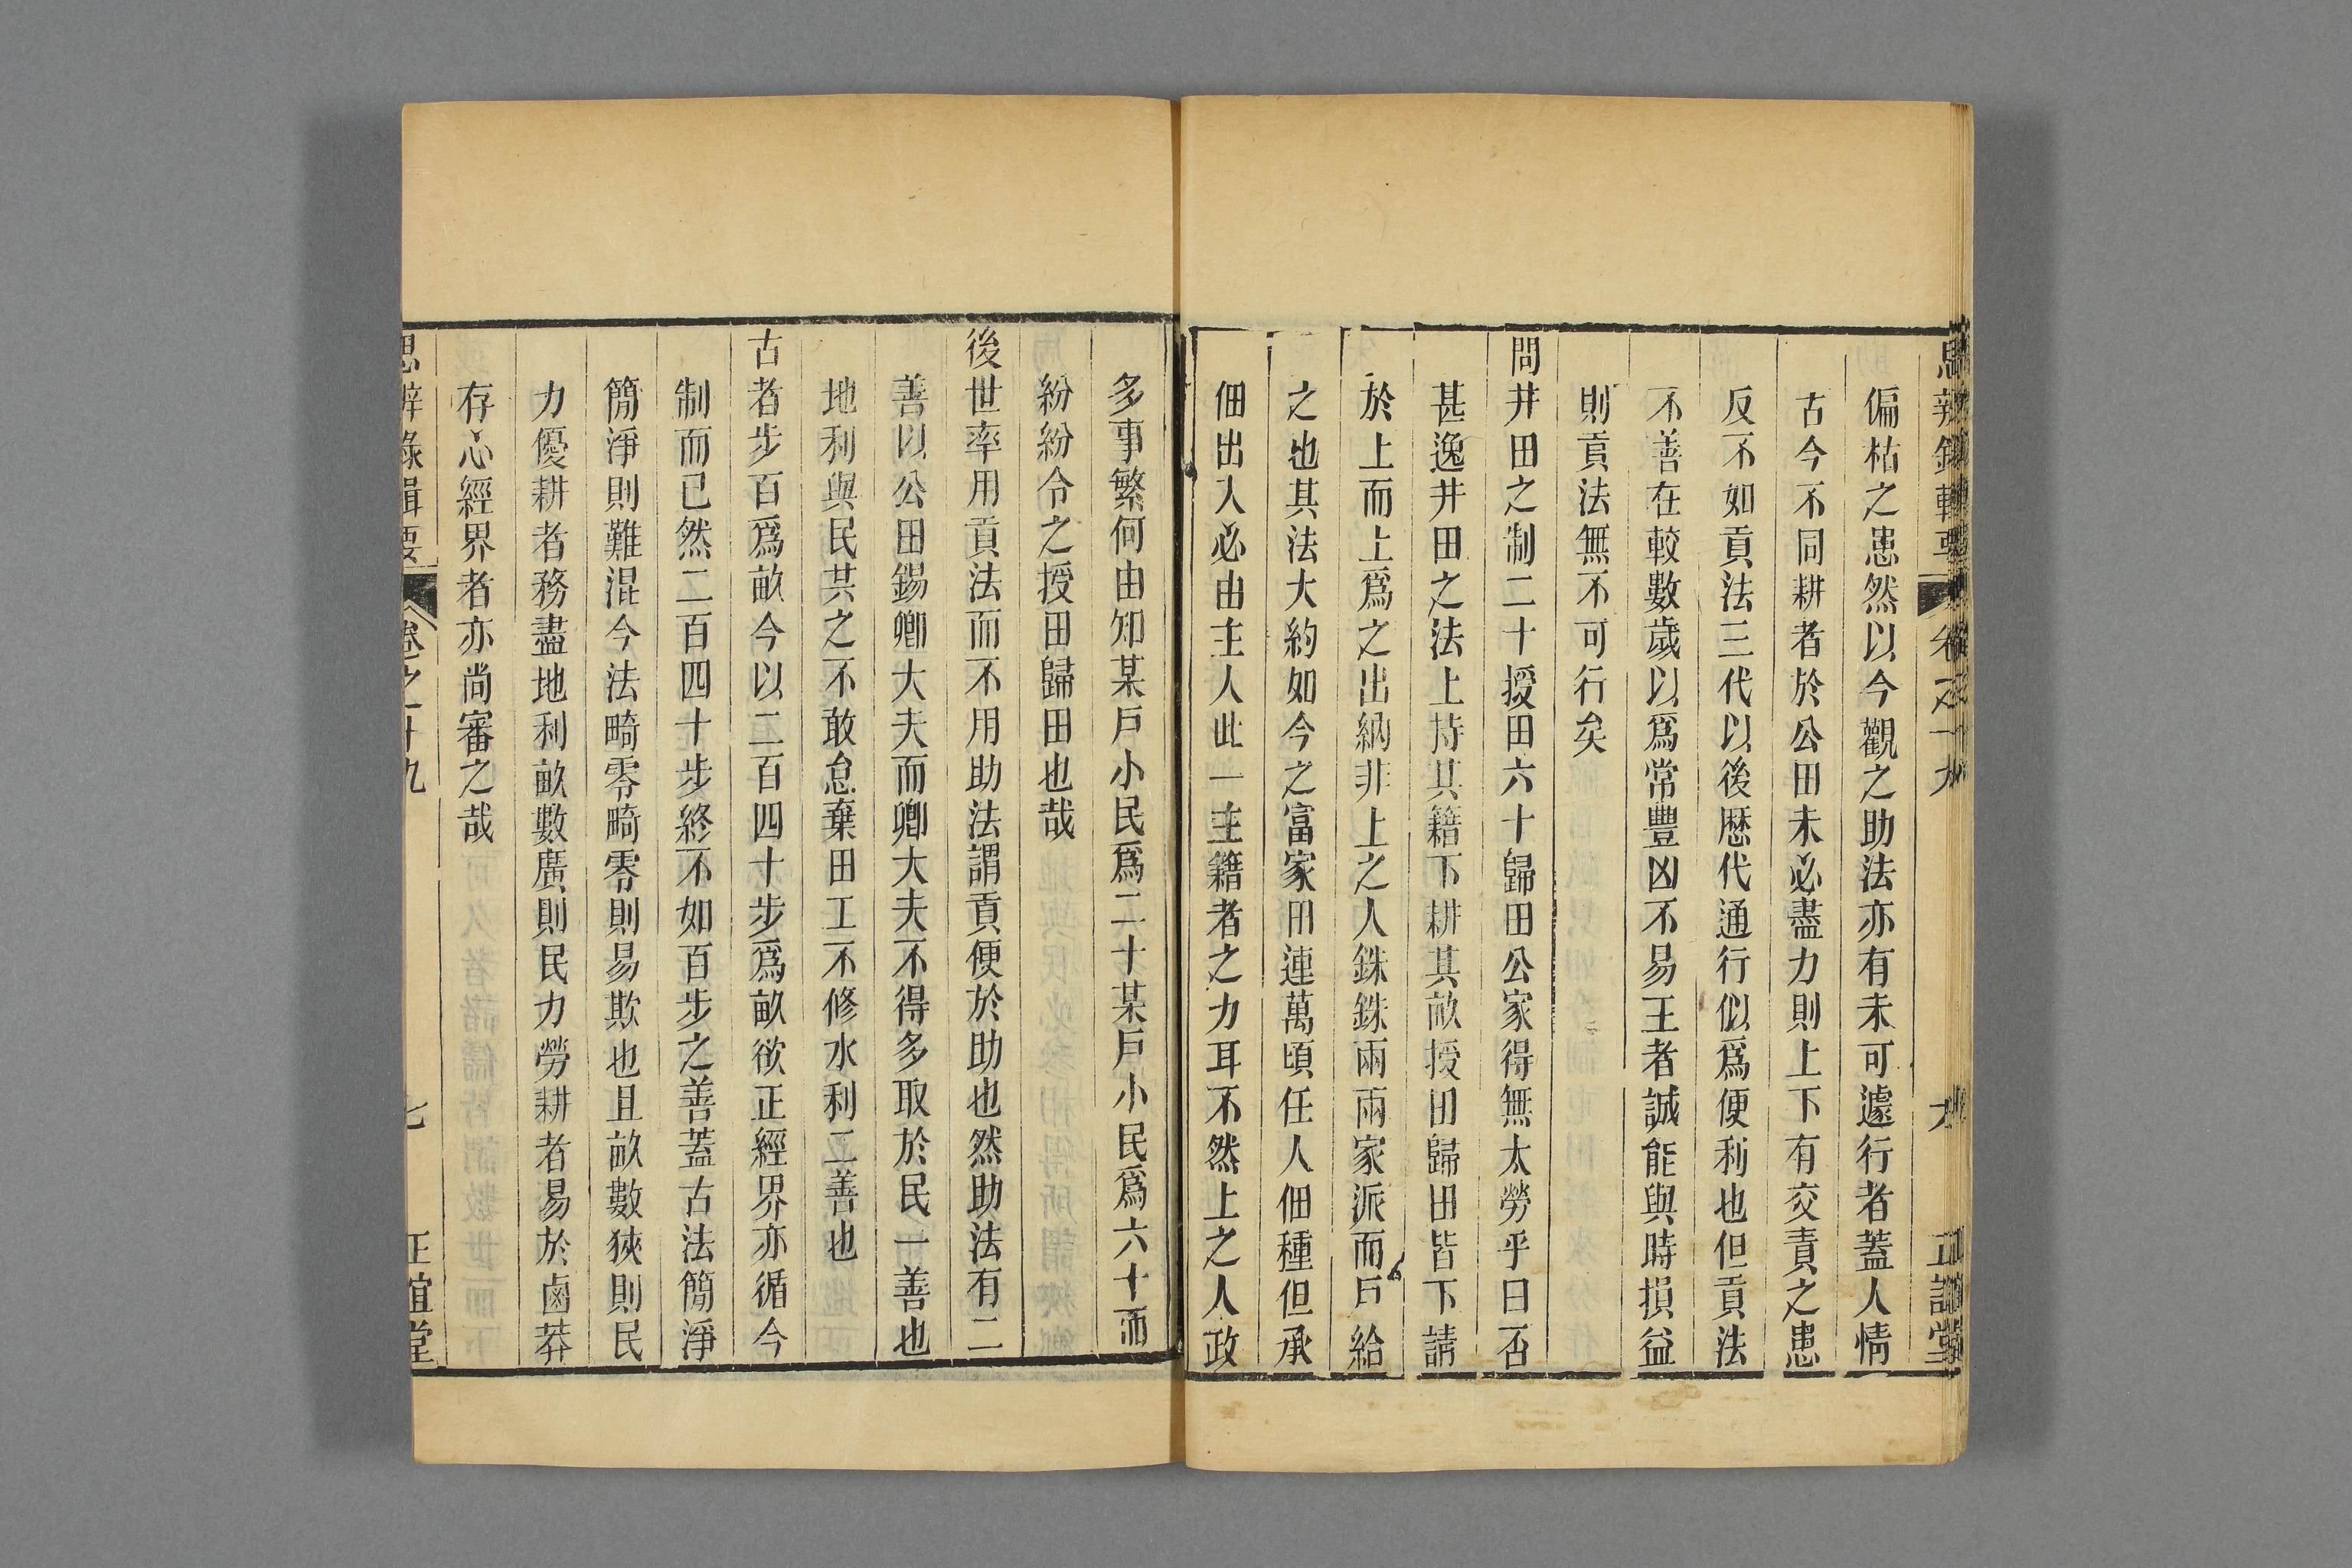 思辨錄輯要 卷之十九 六 正誼堂
偏枯之患然以今觀之助法亦有未可遽行者蓋人情
古今不同耕者於公田未必盡力則上下有交責之患
反不如貢法三代以後歷代通行似爲便利也但貢法
不善在較數歲以爲常豐凶不易王者誠能與時損益
則貢法無不可行矣
問井田之制二十授田六十歸田公家得無太勞乎曰否
甚逸井田之法上持其籍下耕其畝授田歸田皆下請
於上而上爲之出納非上之人銖銖兩兩家派而戶給
之也其法大約如今之富家田連萬頃任人佃種但承
佃出入必由主人此一主籍者之力耳不然上之人政
多事繁何由知某戶小民爲二十某戶小民爲六十而
紛紛令之授田歸田也哉
後世率用貢法而不用助法謂貢便於助也然助法有二
善以公田錫卿大夫而卿大夫不得多取於民一善也
地利與民共之不敢怠棄田工不修水利二善也
古者步百爲畝今以二百四十步爲畝欲正經界亦循今
制而已然二百四十步終不如百步之善蓋古法簡淨
簡淨則難混今法畸零畸零則易欺也且畝數狹則民
力優耕者務盡地利畝數廣則民力勞耕者易於鹵莽
存心經界者亦尚審之哉
思辨錄輯要 卷之十九 七 正誼堂